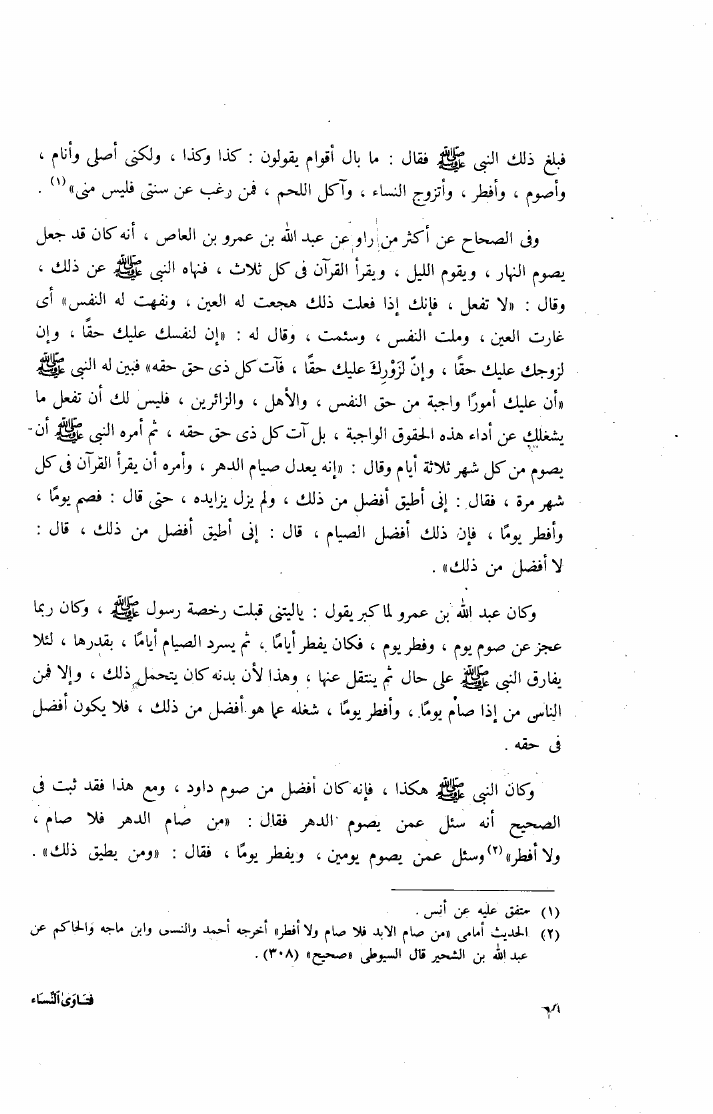 فبلغ ذلك النبى ﷺ فقال : ما بال أقوام يقولون : كذا وكذا ، ولكنى أصلى وأنام ،
وأصوم ، وأفطر ، وأتزوج النساء ، وآكل اللحم ، فمن رغب عن سنتى فليس منى» (١) .
وفى الصحاح عن أكثر من راو عن عبد الله بن عمرو بن العاص ، أنه كان قد جعل
يصوم النهار ، ويقوم الليل ، ويقرأ القرآن فى كل ثلاث ، فنهاه النبى ﷺ عن ذلك ،
وقال : «لا تفعل ، فإنك إذا فعلت ذلك هجعت له العين ، ونفهت له النفس» أى
غارت العين ، وملت النفس ، وسئمت ، وقال له : «إن لنفسك عليك حقًا ، وإن
لزوجك عليك حقًا ، وإنّ لزَوْرِكَ عليك حقًا ، فآت كل ذى حق حقه» فبين له النبى ﷺ
«أن عليك أمورًا واجبة من حق النفس ، والأهل ، والزائرين ، فليس لك أن تفعل ما
يشغلك عن أداء هذه الحقوق الواجبة ، بل آت كل ذى حق حقه ، ثم أمره النبى ﷺ أن
يصوم من كل شهر ثلاثة أيام وقال : «إنه يعدل صيام الدهر ، وأمره أن يقرأ القرآن فى كل
شهر مرة ، فقال : إنى أطيق أفضل من ذلك ، ولم يزل يزايده ، حتى قال : فصم يومًا ،
وأفطر يومًا ، فإن ذلك أفضل الصيام ، قال : إنى أطيق أفضل من ذلك ، قال :
لا أفضل من ذلك» .
وكان عبد الله بن عمرو لما كبر يقول : ياليتنى قبلت رخصة رسول ﷺ ، وكان ربما
عجز عن صوم يوم ، وفطر يوم ، فكان يفطر أيامًا ، ثم يسرد الصيام أيامًا ، بقدرها ، لئلا
يفارق النبى ﷺ على حال ثم ينتقل عنها ؛ وهذا لأن بدنه كان يتحمل ذلك ، وإلا فمن
الناس من إذا صام يومًا ، وأفطر يومًا ، شغله عما هو أفضل من ذلك ، فلا يكون أفضل
فى حقه .
وكان النبى ﷺ هكذا ، فإنه كان أفضل من صوم داود ، ومع هذا فقد ثبت فى
الصحيح أنه سئل عمن يصوم الدهر فقال : «من صام الدهر فلا صام ،
ولا أفطر» (٢) وسئل عمن يصوم يومين ، ويفطر يومًا ، فقال : «ومن يطيق ذلك» .
(١) متفق عليه عن أنس .
(٢) الحديث أمامى «من صام الابد فلا صام ولا أفطر» أخرجه أحمد والنسى وابن ماجه والحاكم عن
عبد الله بن الشحير قال السيوطى «صحيح» (٣٠٨) .
فتاوى النساء